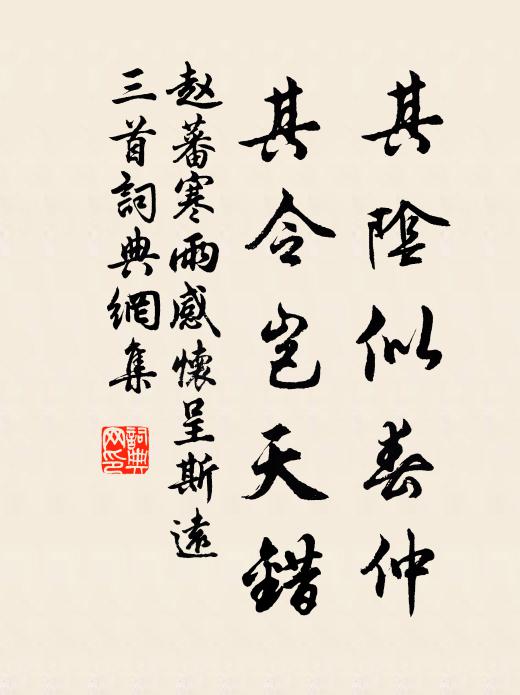 其陰似春仲
其令豈天錯
赵蕃寒雨感懷呈斯遠
三首詞典網集
詞典
网印